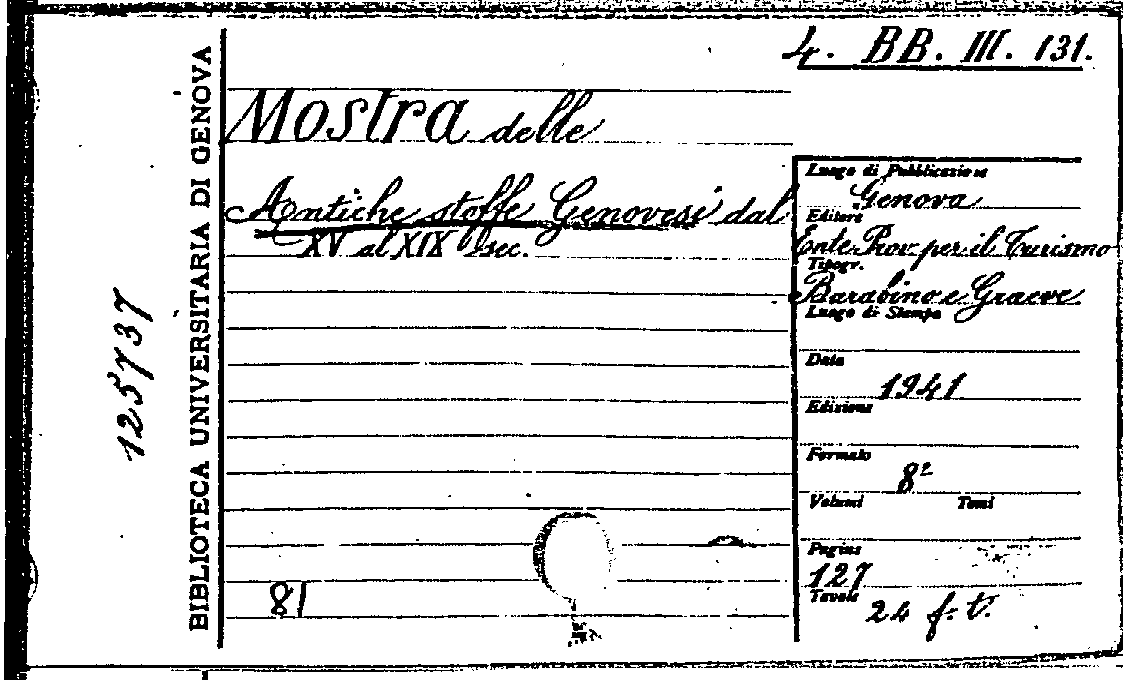 4. BB. III. 131.
Mostra delle
Antiche stoffe Genovesi dal
XV al XIX sec.
81
125737
BIBLIOTECA UNIVERSITARIA DI GENOVA
Luogo di Pubblicazione
Genova
Editore
Ente Prov. per il Turismo
Tipogr.
Barabino e Graeve
Luogo di Stampa
Data
1941
Edizione
Formato
8º
Volumi Tomi
Pagine
127
Tavole
24 f. t.